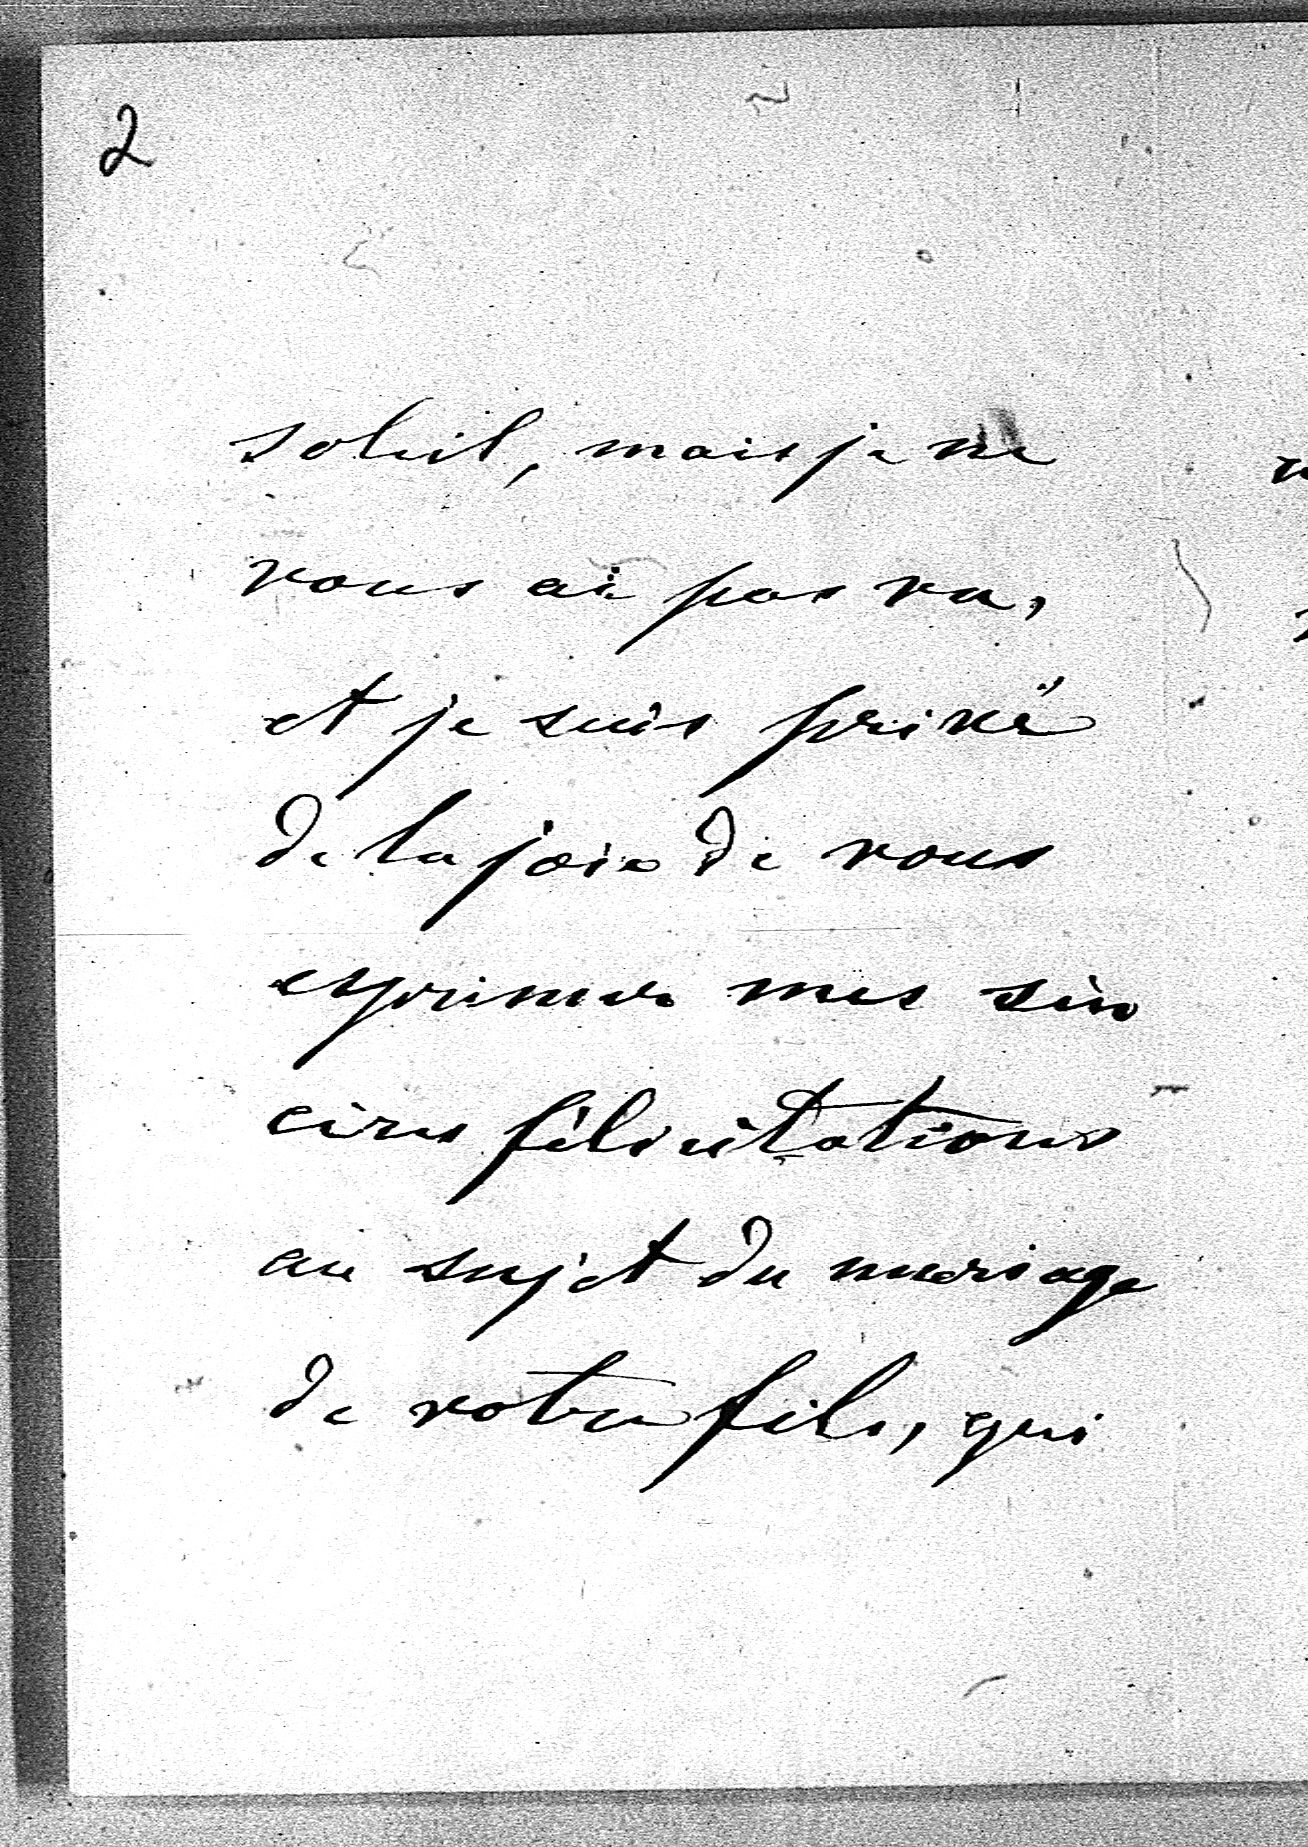 2
soleil, mais je ne
vous ai pas vu,
et je suis privé
de la joie de vous
exprimer mes sin
cères félicitations
au sujet du mariage
de votre fils, qui